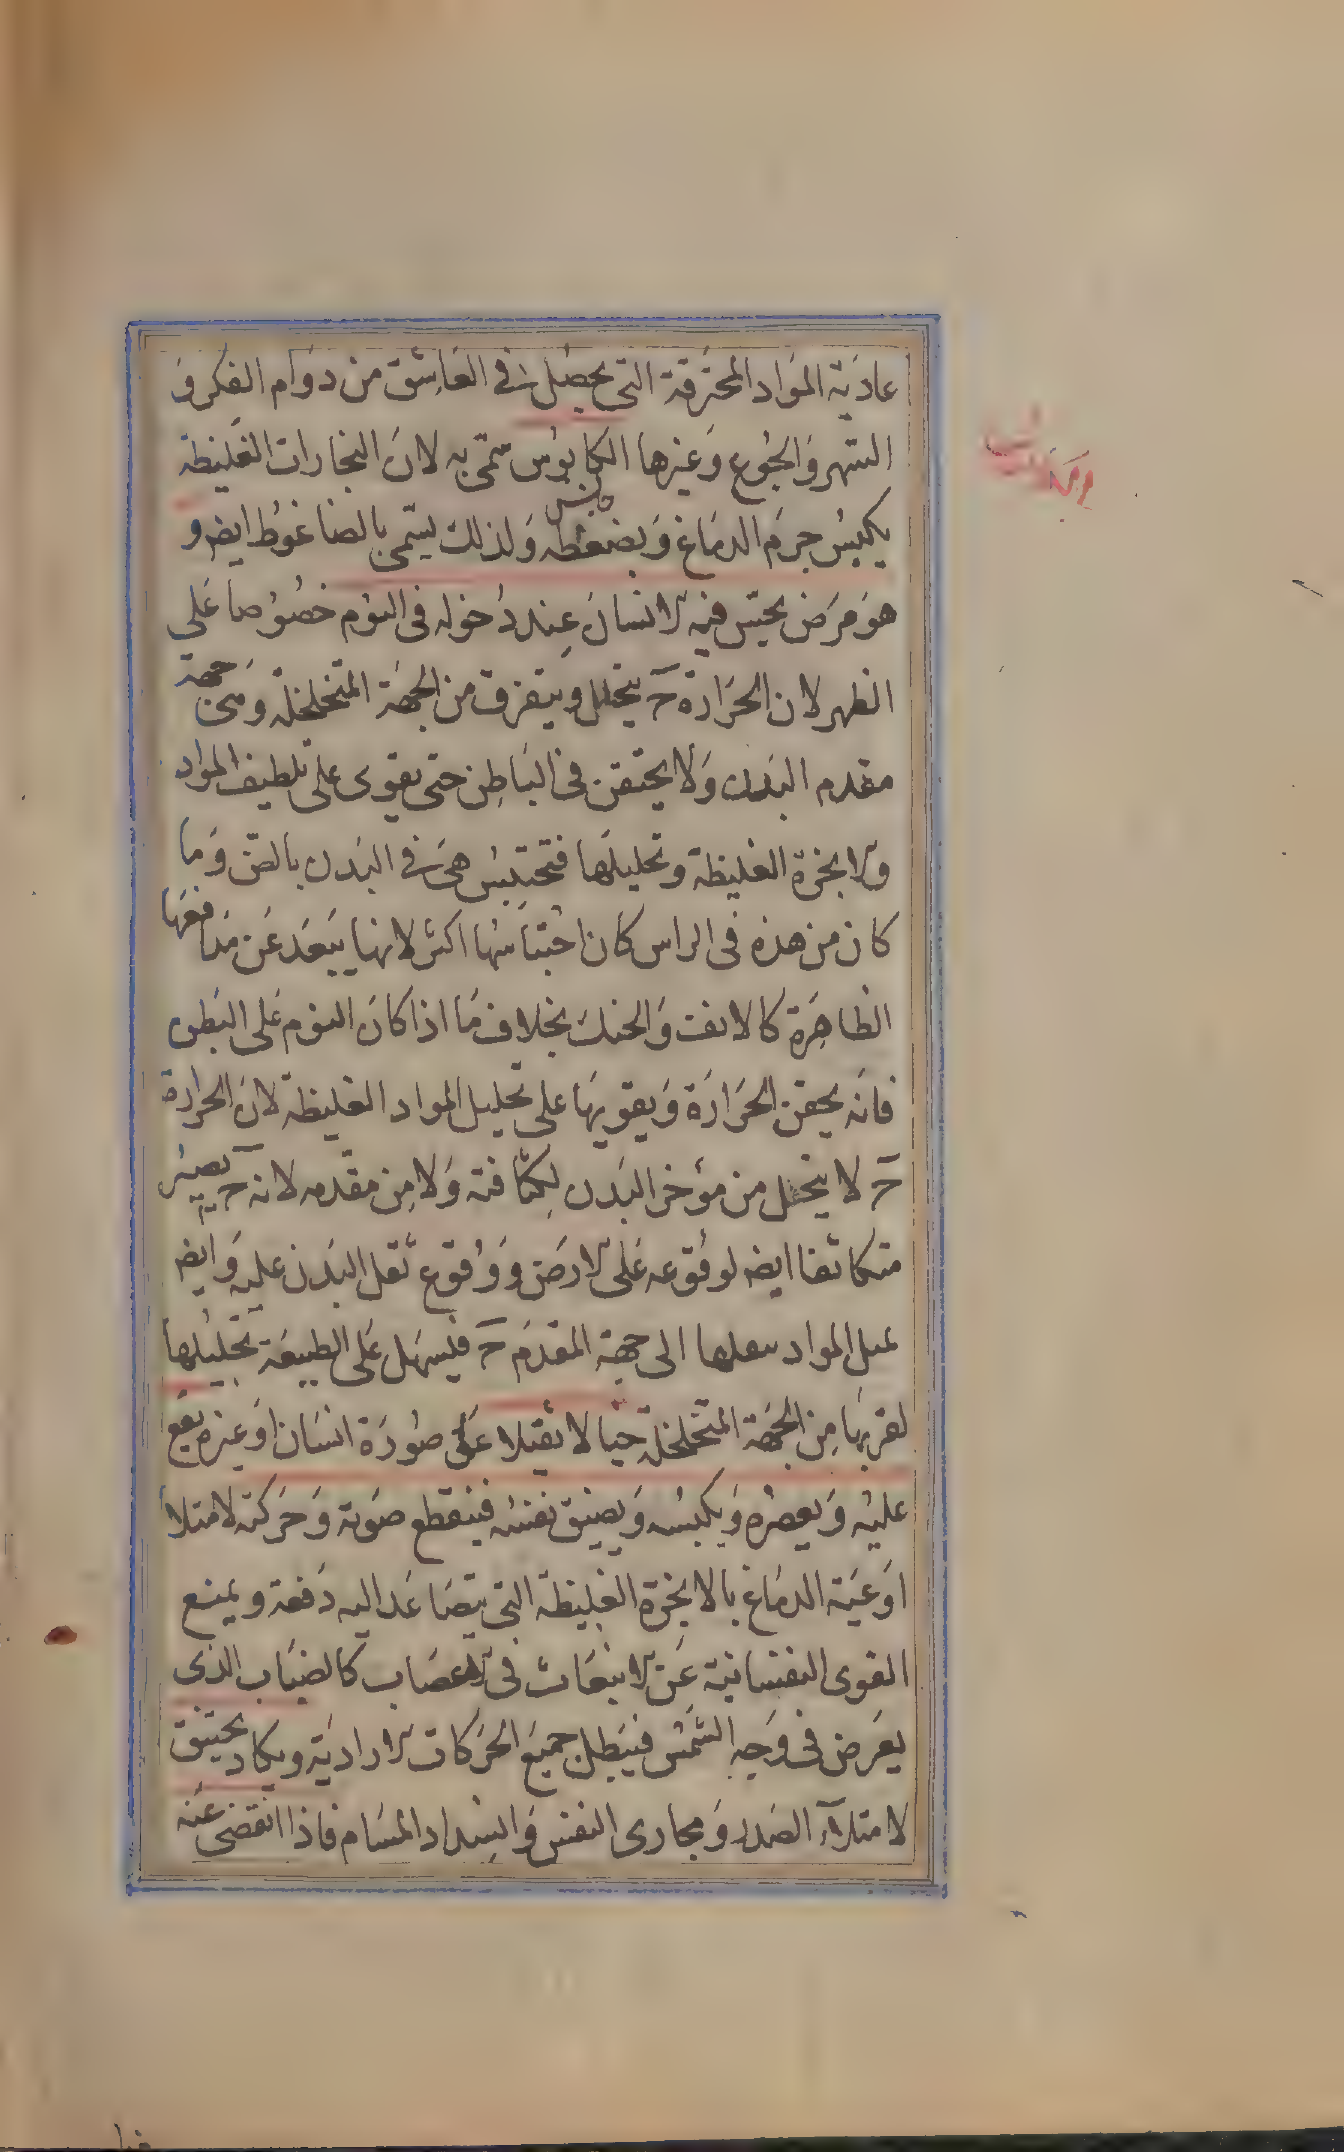 عادیة المواد المحترقة التی یحصل فی العاشق من دوام الفکر و
السهر و الجوع و غیرها الکابوس سمی به لان البخارات الغلیظة
یکبس جرم الدماغ و یضغطه و لذلک یسمی بالضاغوط ایضا و
هو مرض یحس فیه الانسان عند دخوله فی النوم خصوصا علی
الظهر لان الحرارة ح یتحلل و یتفرق من الجهة المتخلخلة و هی جهة
مقدم البدن و لا یحتقن فی الباطن حتی یقوی علی تلطیف المواد
و الابخرة الغلیظة و تحلیلها فتحتبس هی فی البدن بالضن و ما
کان من هذه فی الراس کان احتباسها اکثر لانها یبعد عن مدافعها
الظاهرة کالانف و الحنک بخلاف ما اذا کان النوم علی البطن
فانه یحقن الحرارة و یقویها علی تحلیل المواد الغلیظة لان الحرارة
ح لا یتحلل من مؤخر البدن لکثافته و لا من مقدمه لانه ح یصیر
متکاثفا ایضا لوقوعه علی الارض و وقوع ثقل البدن علیه و ایضا
یمیل المواد بثقلها الی جهة المقدم ح فیسهل علی الطبیعة تحلیلها
لقربها من الجهة المتخلخلة خیالا ثقیلا علی صورة انسان او غیره یقع
علیه و یعصره و یکبسه و یضیق نفسه فینقطع صوته و حرکته لامتلاء
اوعیة الدماغ بالابخرة الغلیظة التی یتصاعد الیه دفعة و یمنع
القوی النفسانیة عن الانبعاث فی الاعصاب کالضباب الذی
یعرض فی وجه الشمس فیبطل جمیع الحرکات الارادیة و یکاد یختنق
لامتلاء الصدر و مجاری النفس و انسداد المسام فاذا انقضی عنه